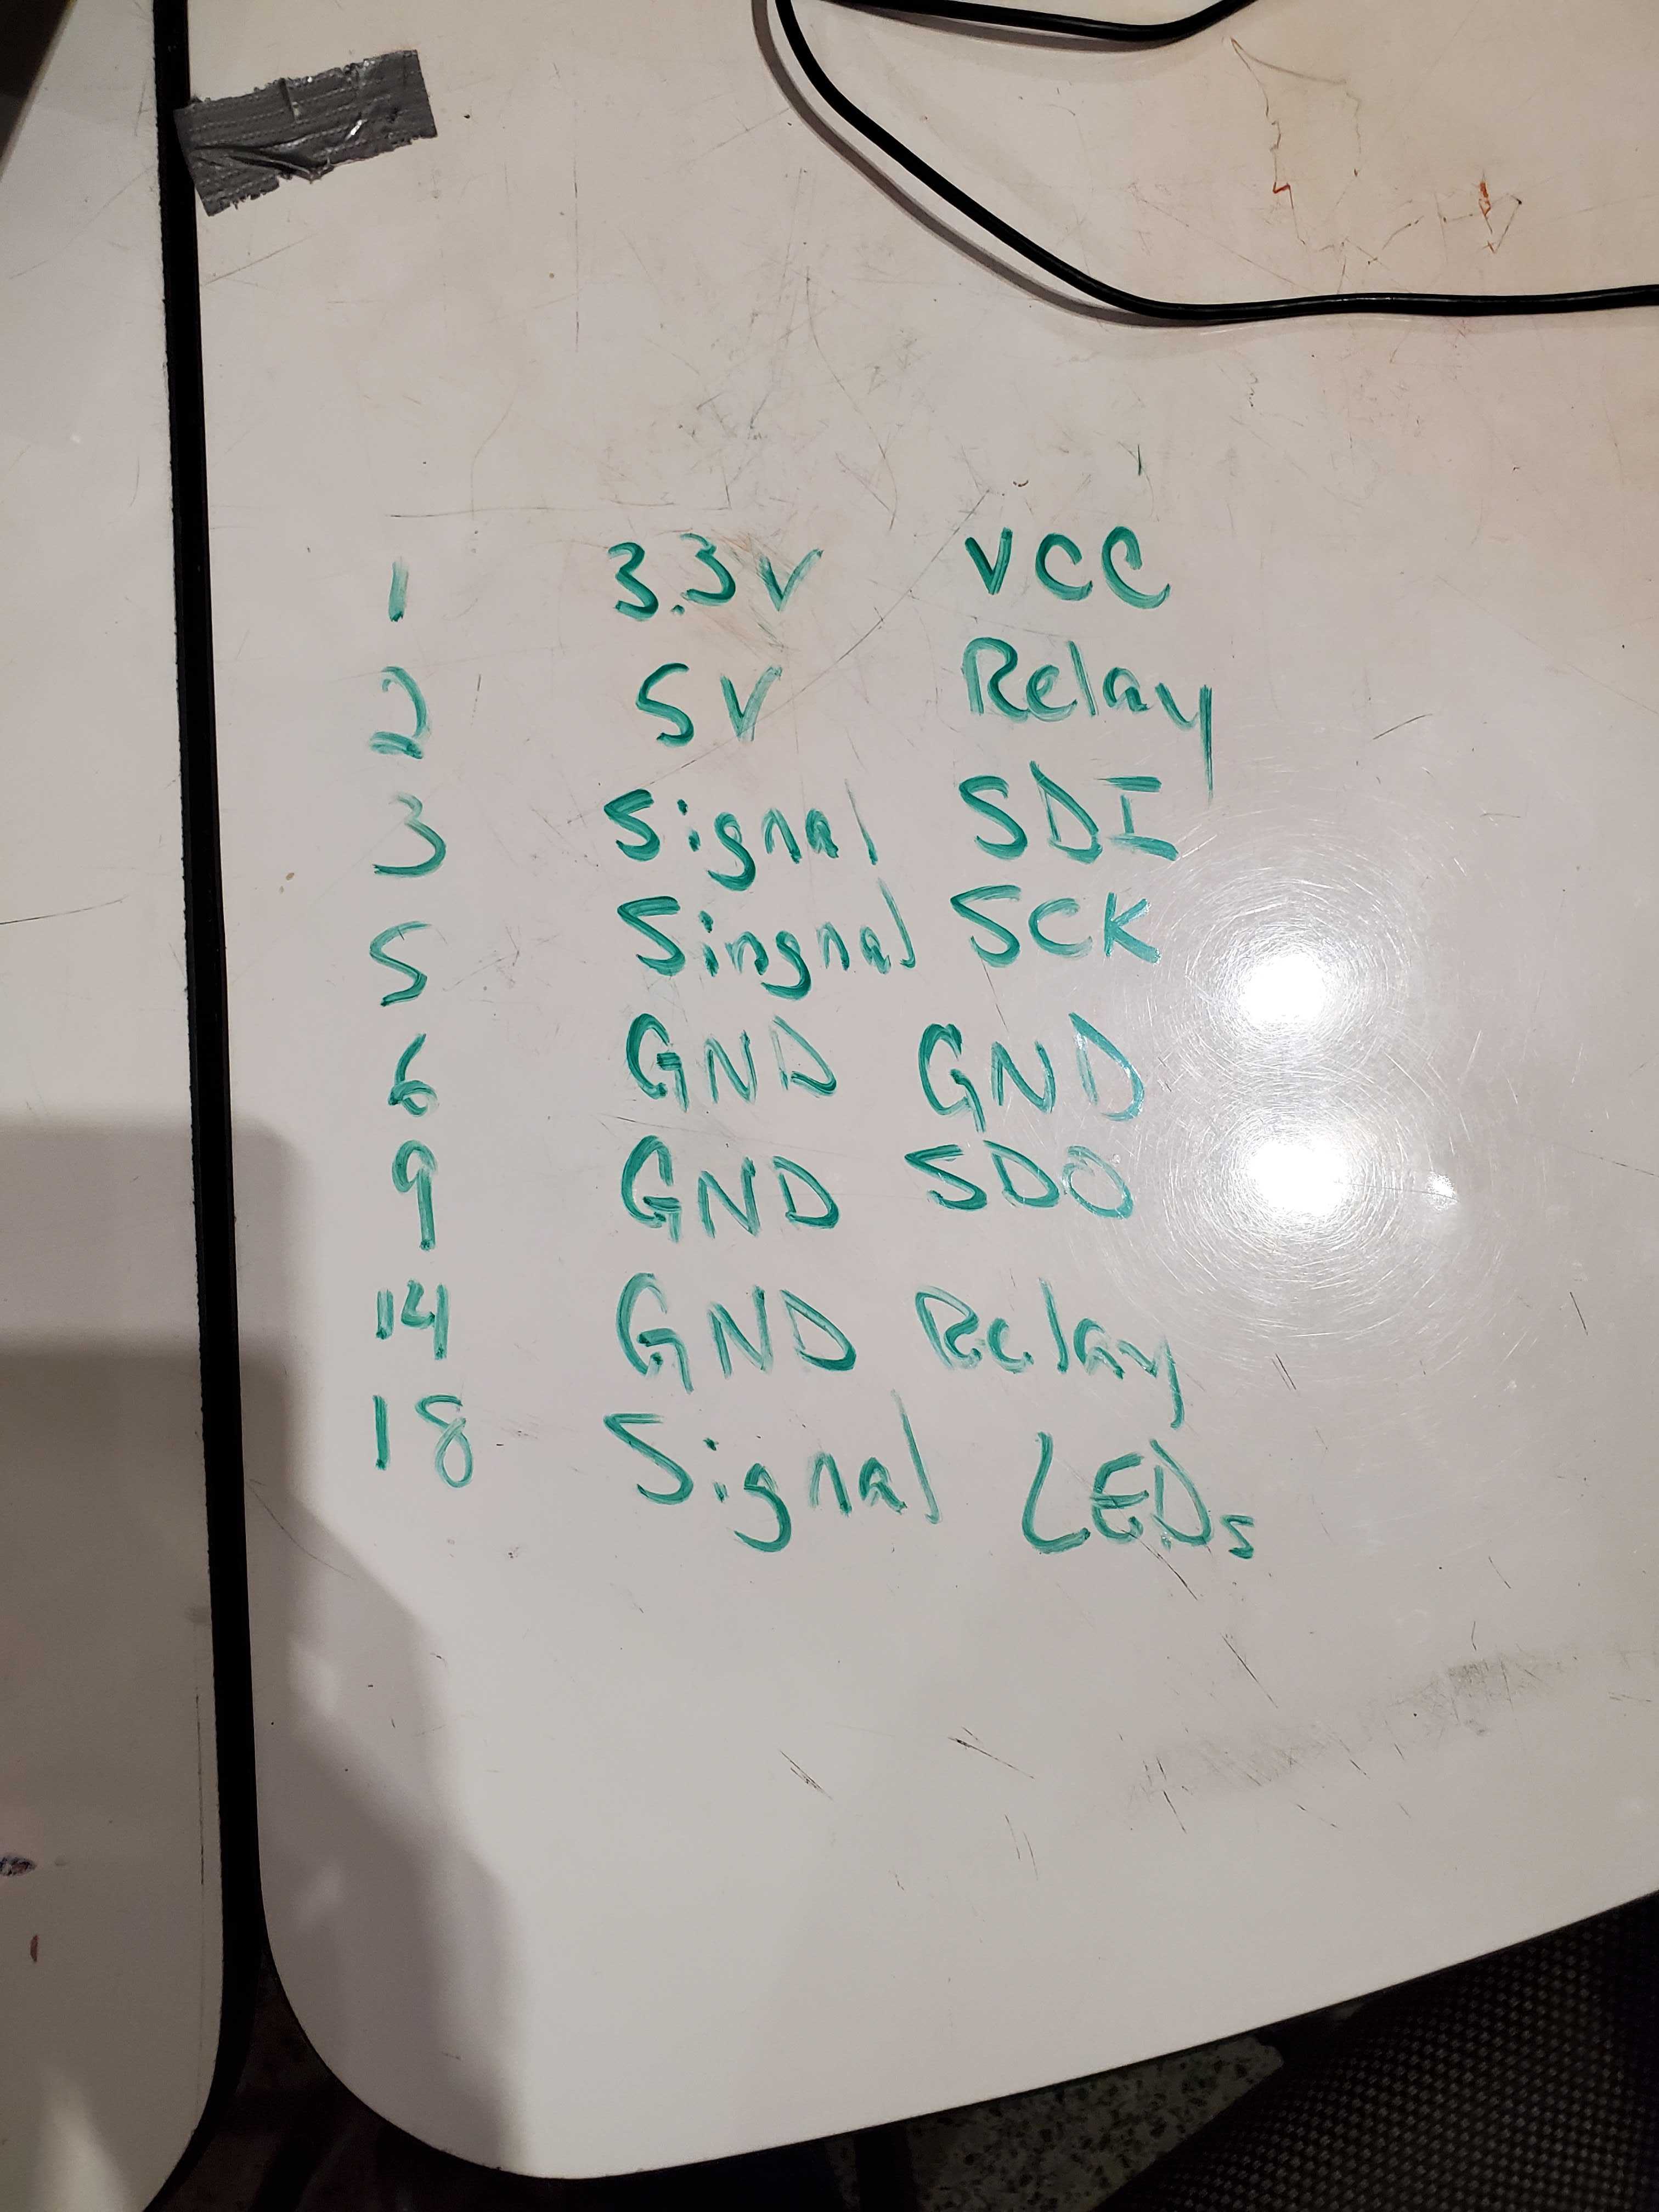 1 3.3V VCC
2 5V Relay
3 Signal SDI
5 Singnal SCK
6 GND GND
9 GND SDO
14 GND Relay
18 Signal LEDs